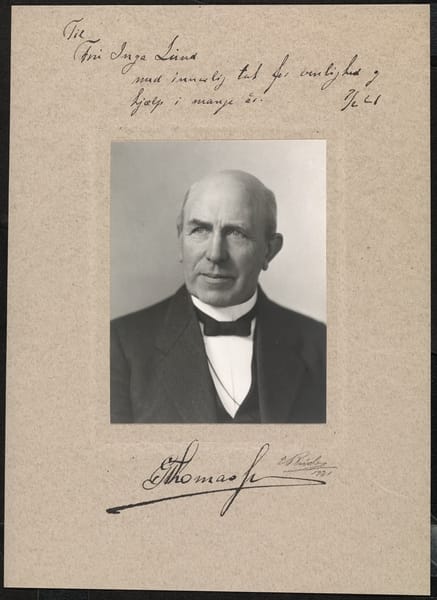 Til
Frk Inga Lund
med inderlig tak for venlighed og
hjælp i mange år.
Thomas
1921